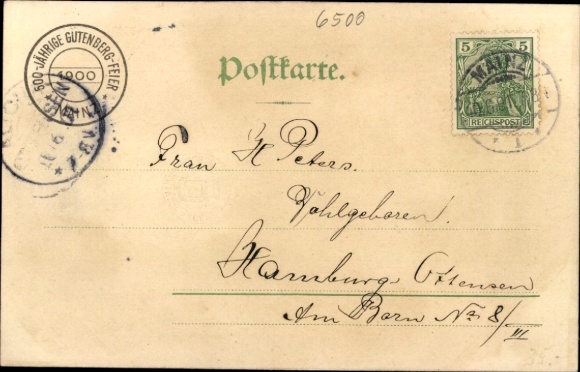 6500
500-JÄHRIGE GUTENBERG-FEIER
1900
MAINZ
Postkarte.
5 5
REICHSPOST
MAINZ
1
Frau H Peters.
Wohlgeboren.
Hamburg Ottensen
Am Born No 8/III
35.-